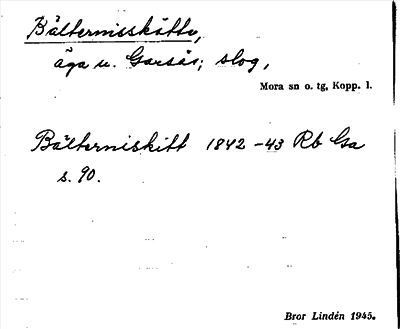 Bältermisskätte,
äga u. Garsås; slog,
Mora sn o. tg, Kopp. l.
Bältermiskitt 1842-43 Rb Gsa
s. 90.
Bror Lindén 1945.